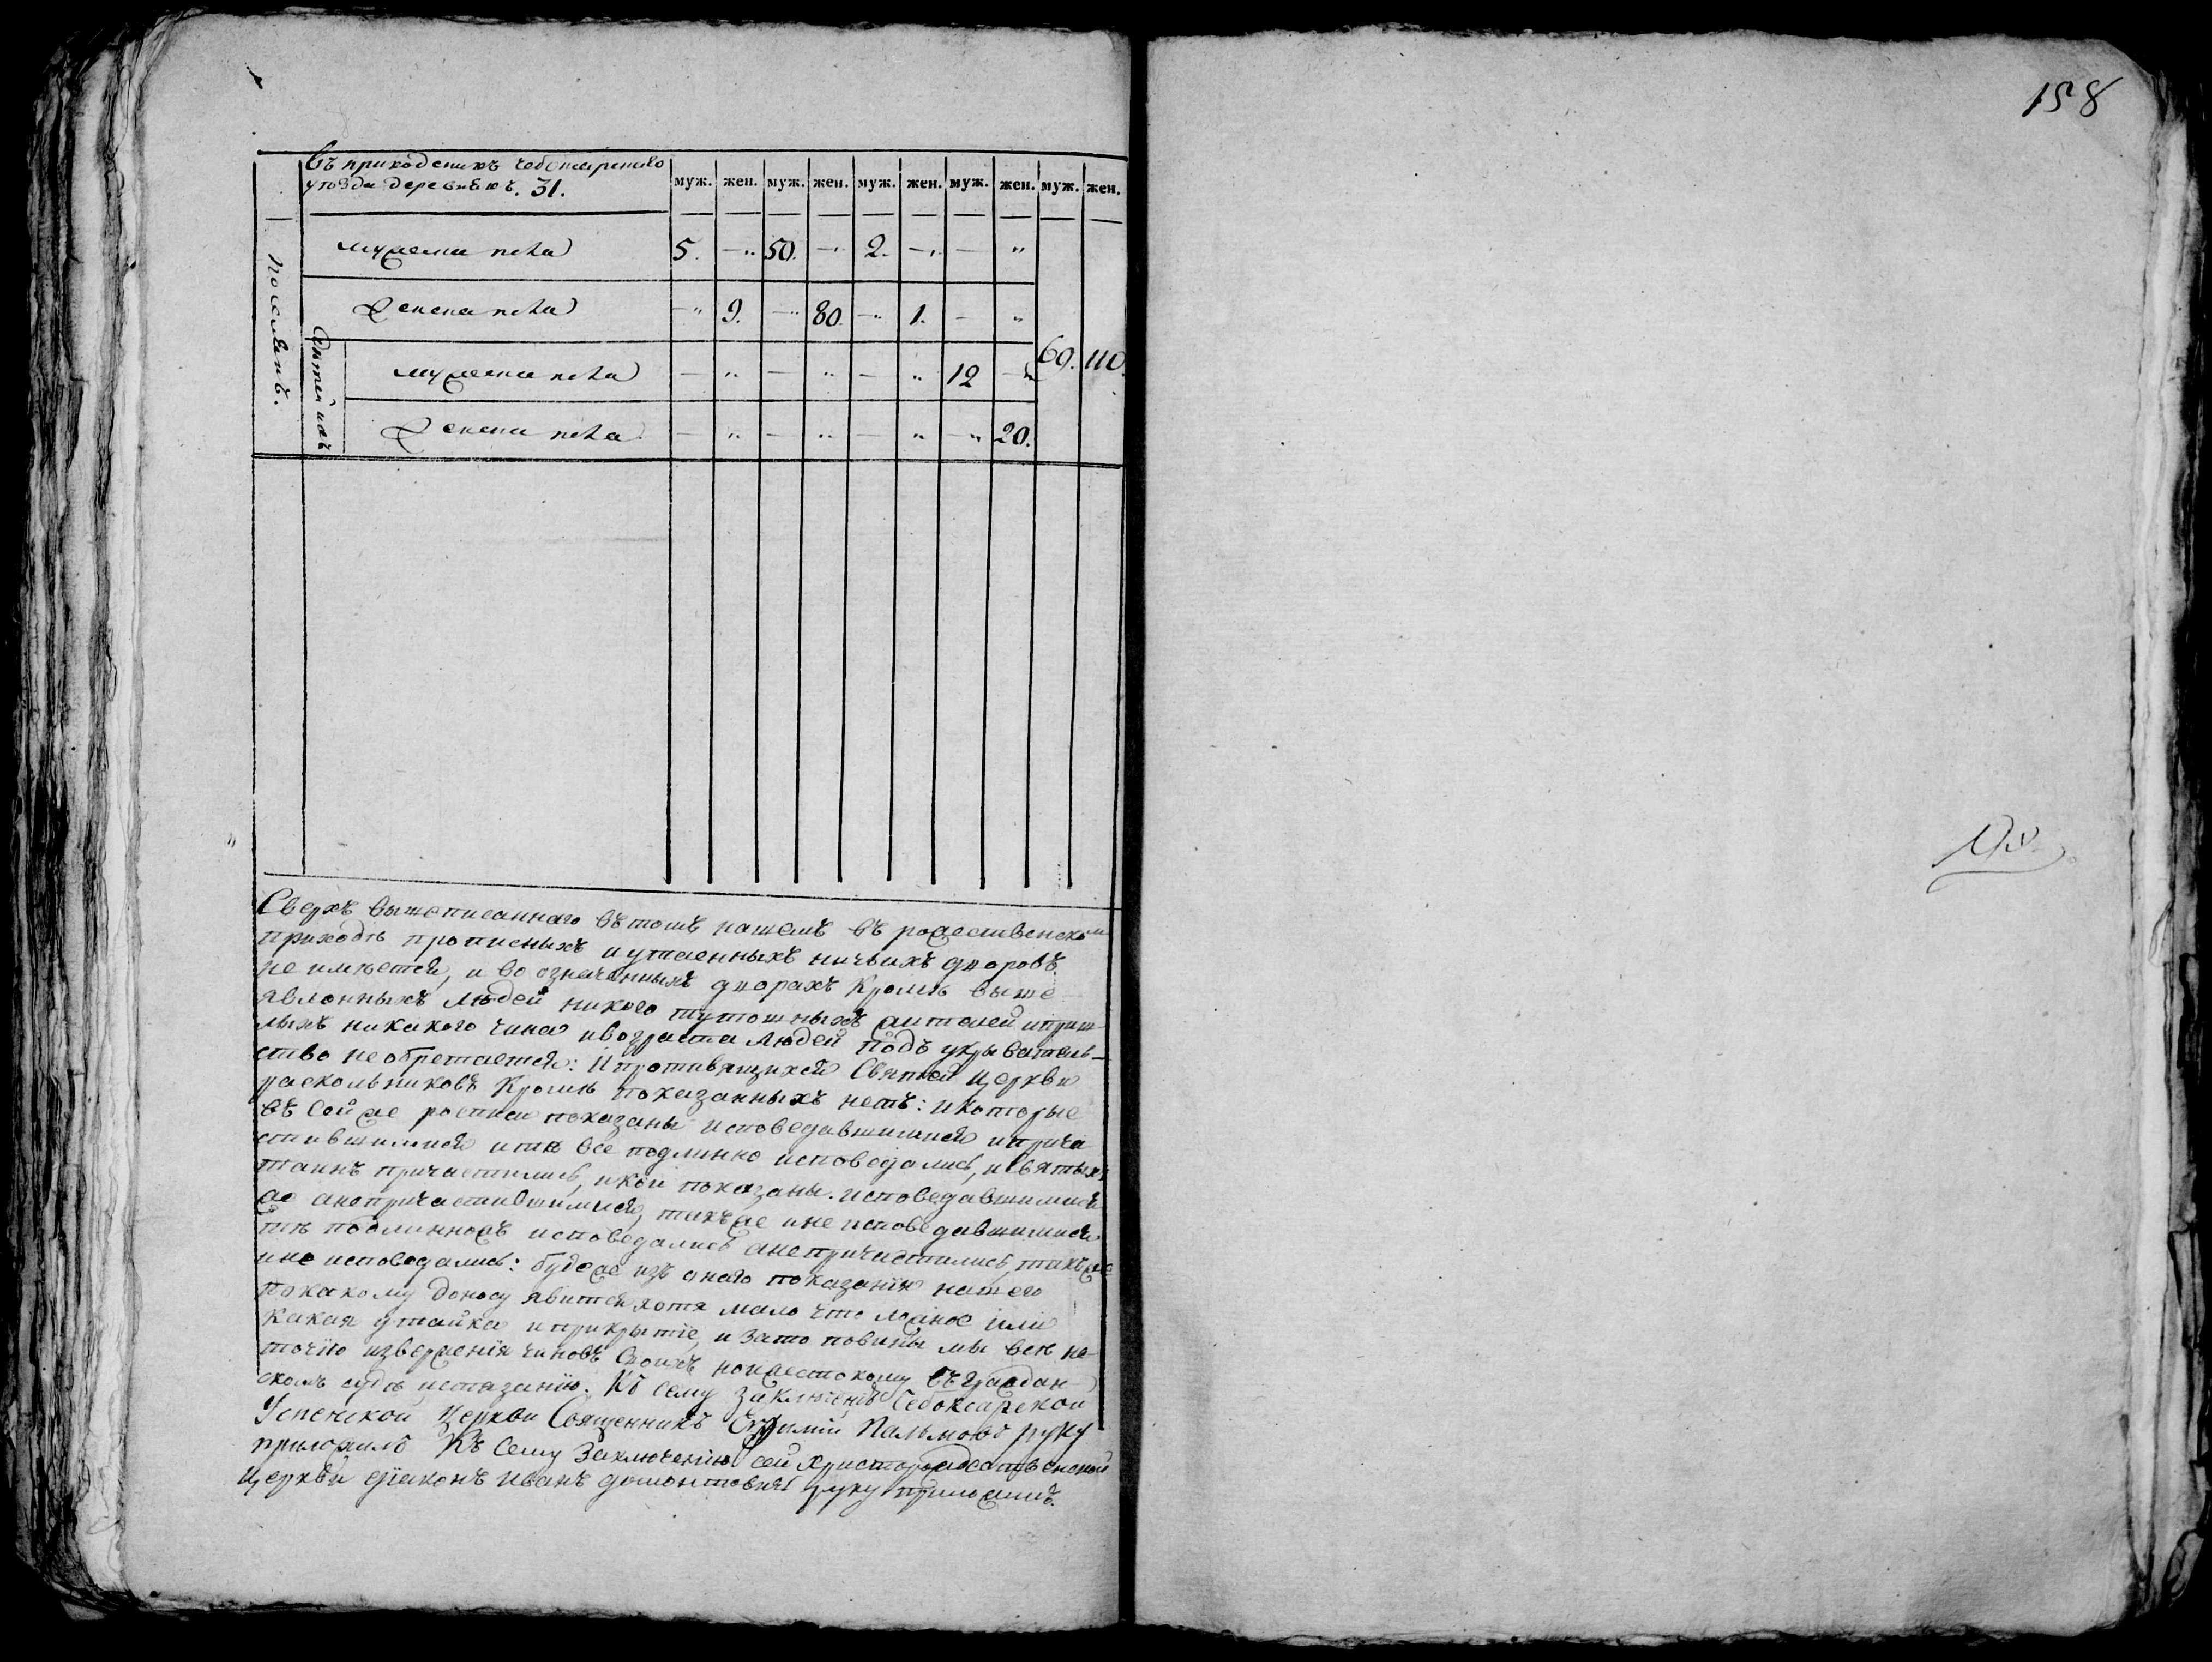 158
Въ приходскихъ чебоксарскаго
уѣзда деревняхъ. 31.
муж. жен. муж. жен. муж. жен. муж. жен. муж. жен.
Поселянъ.
мужеска пола 5. — 50. — 2. — — "
Женска пола — 9. — 80. — 1. — "
69. 110.
Дѣтей ихъ
мужеска пола — " — " — " 12 —
Женска пола — " — " — " — 20.
Сверхъ вышеписаннаго въ томъ нашемъ въ рожественском
приходѣ прописныхъ и утаенныхъ ничьихъ дворовъ
не имѣется, и во означенныхъ дворахъ кромѣ выше
явленныхъ людей никого тутошныхъ жителей и приш-
лыхъ никакого чина и возраста людей подъ укрыватель-
ство не обретается: И противящихся Святей церкви
раскольниковъ кромѣ показанныхъ нетъ: и которые
въ сей же росписи показаны исповедавшимися и прича
стившимися и тѣ все подлинно исповедались, и святыхъ
таинъ причастились, и кои показаны исповедавшимися
же а непричастившимися, такъже и не исповедавшимися
тѣ подлинножъ исповедались а не причастились, такъже
и не исповедались: буде же изъ онаго показанія нашего
по какому доносу явится хотя мало что ложное или
какая утайка и прикрытіе, и за то повинны мы все не
точію изверженія чиновъ своихъ но и жестокому въ граждан
скомъ судѣ истязанію. Къ сему заключенію Чебоксарской
Успенской Церкви Священникъ Ефимій Пальмовъ руку
приложилъ Къ сему Заключенію сей христорождественской
церкви діаконъ Иванъ домонтовичъ руку приложилъ.